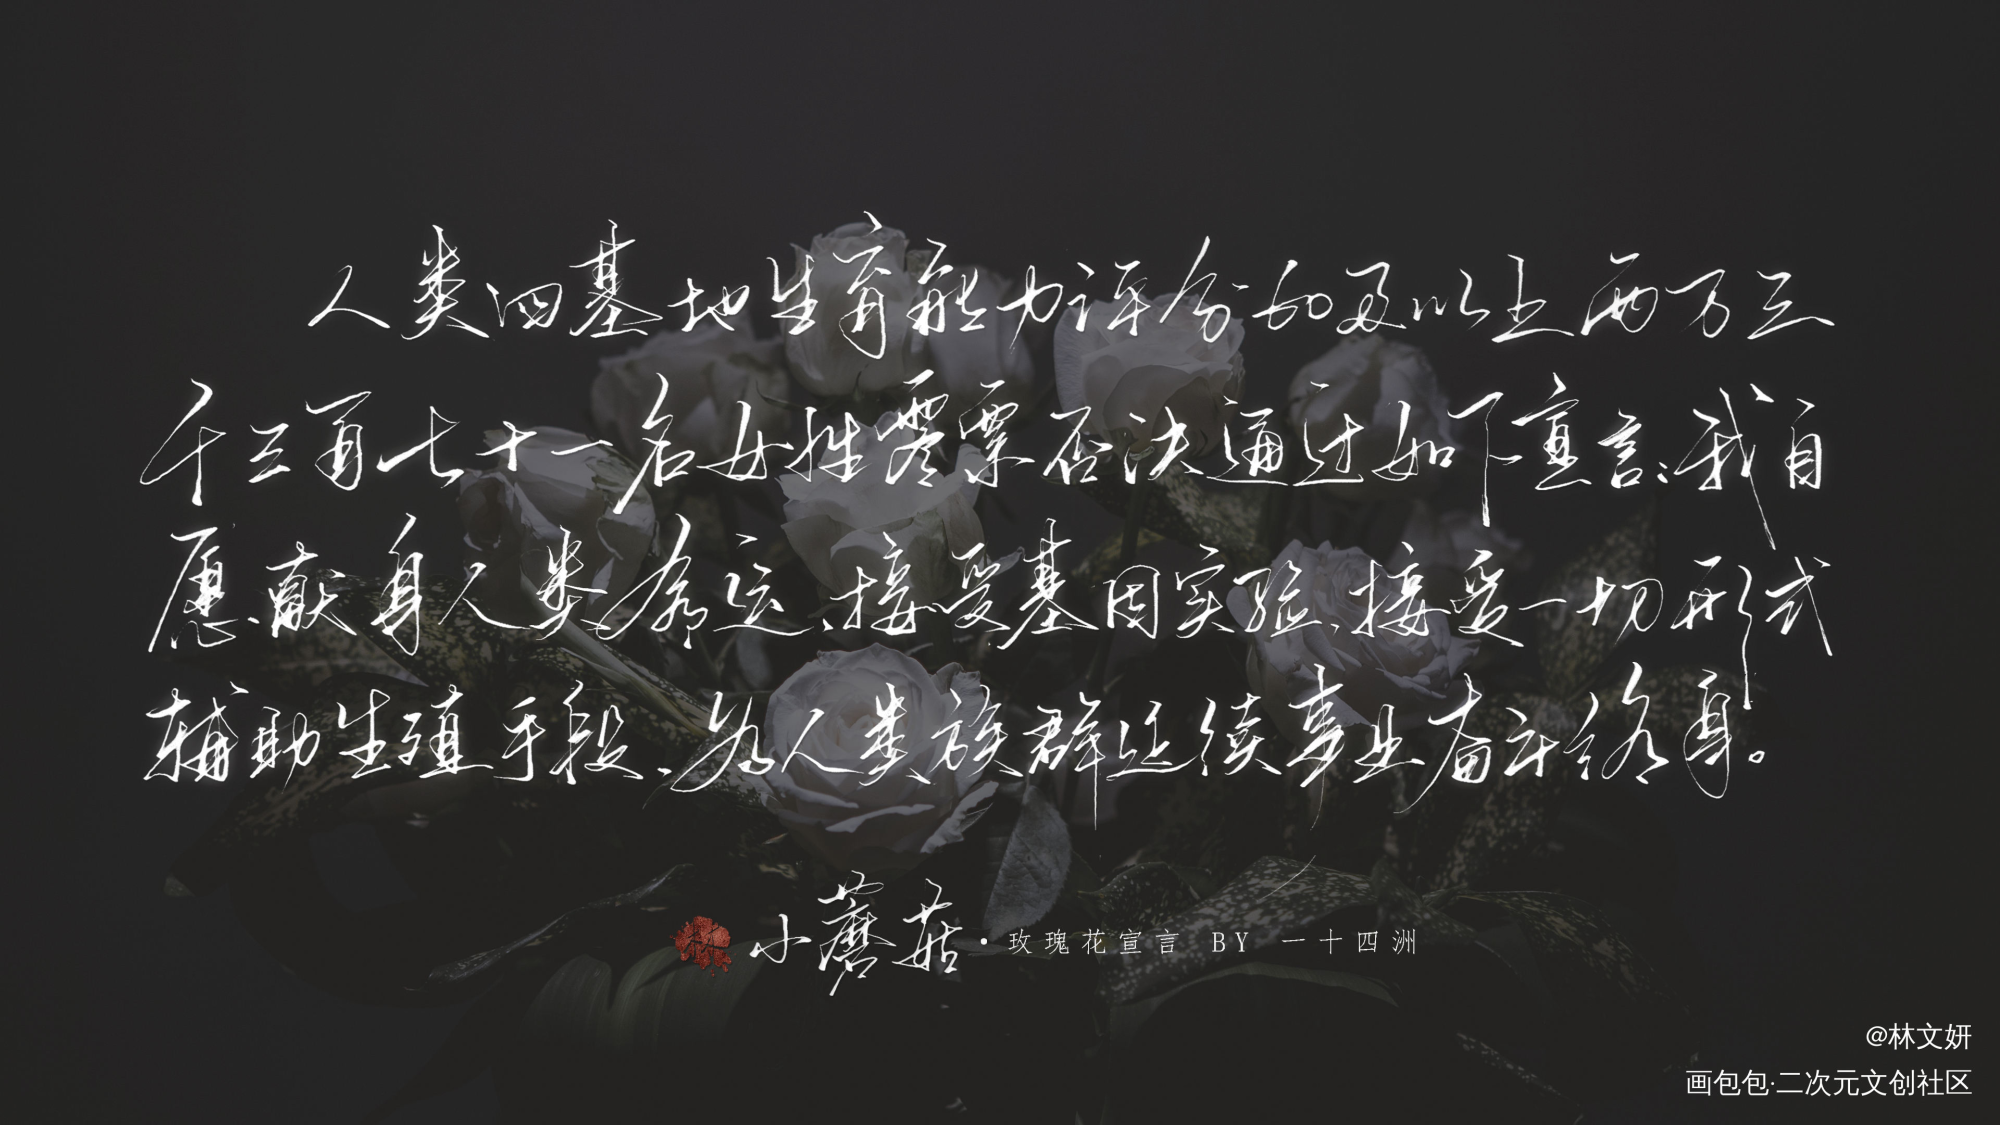 人类四基地生育能力评分60及以上两万三
千三百七十一名女性零票否决通过如下宣言：我自
愿献身人类命运、接受基因实验、接受一切形式
辅助生殖手段、为人类族群延续事业奋斗终身。
小蘑菇·玫瑰花宣言 BY 一十四洲
@林文妍
画包包·二次元文创社区